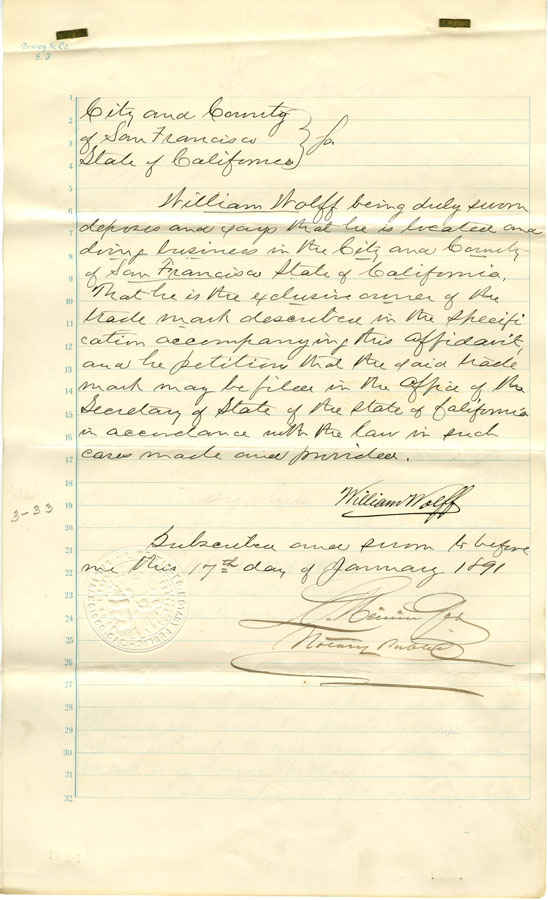 Dewey & Co.
S. F.
1
2
3
4
5
6
7
8
9
10
11
12
13
14
15
16
17
18
19
20
21
22
23
24
25
26
27
28
29
30
31
32
City and County
of San Francisco } ss.
State of California
William Wolff being duly sworn
deposes and says that he is located and
doing business in the City and County
of San Francisco State of California.
That he is the exclusive owner of the
trade mark described in the specifi
cation accompanying this affidavit,
and he petitions that the said trade
mark may be filed in the Office of the
Secretary of State of the State of California
in accordance with the law in such
cases made and provided.
William Wolff
3-33
Subscribed and sworn to before
me this 17th day of January 1891
Notary Public